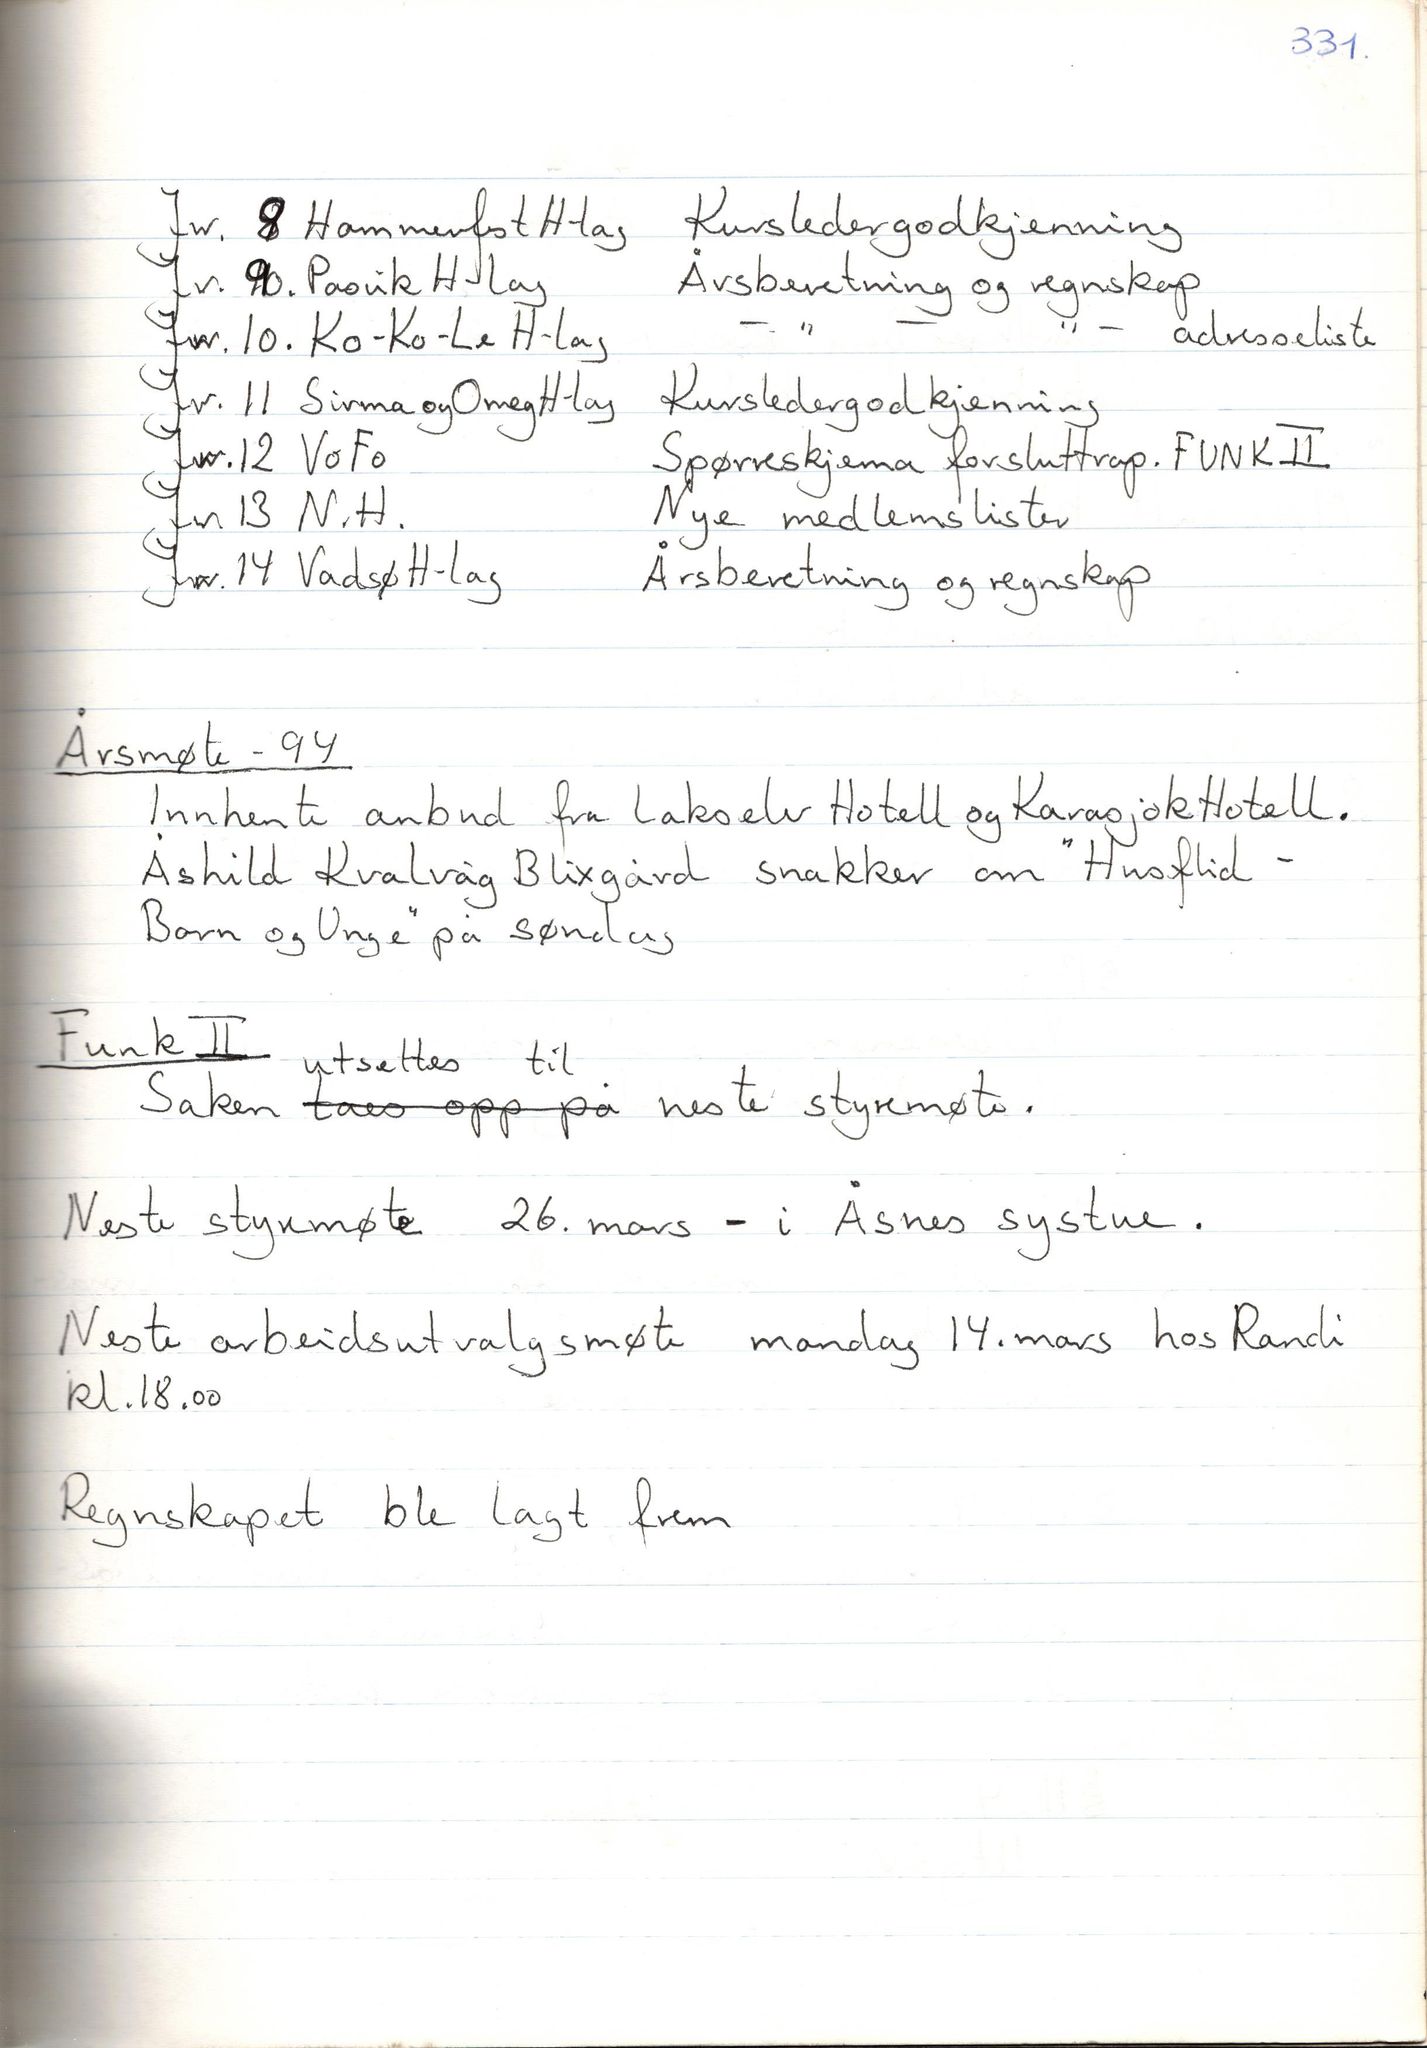 331.
Jnr. 8 Hammerfest H-lag Kursledergodkjenning
Jnr. 9. Pasvik H-lag Årsberetning og regnskap
Jnr. 10. Ko-Ko-Le H-lag - " - " - adresseliste
Jnr. 11 Sirma og Omeg H-lag Kursledergodkjenning
Jnr. 12 VoFo Spørreskjema for sluttrap. FUNK II
Jnr 13 N.H. Nye medlemslister
Jnr. 14 Vadsø H-lag Årsberetning og regnskap
Årsmøte - 94
Innhente anbud fra Lakselv Hotell og Karasjok Hotell.
Åshild Kvalvåg Blixgård snakker om "Husflid -
Barn og Unge" på søndag
Funk II
utsettes til
Saken taes opp på neste styremøte.
Neste styremøte 26. mars - i Åsnes systue.
Neste arbeidsutvalgsmøte mandag 14. mars hos Randi
kl. 18.00
Regnskapet ble lagt frem